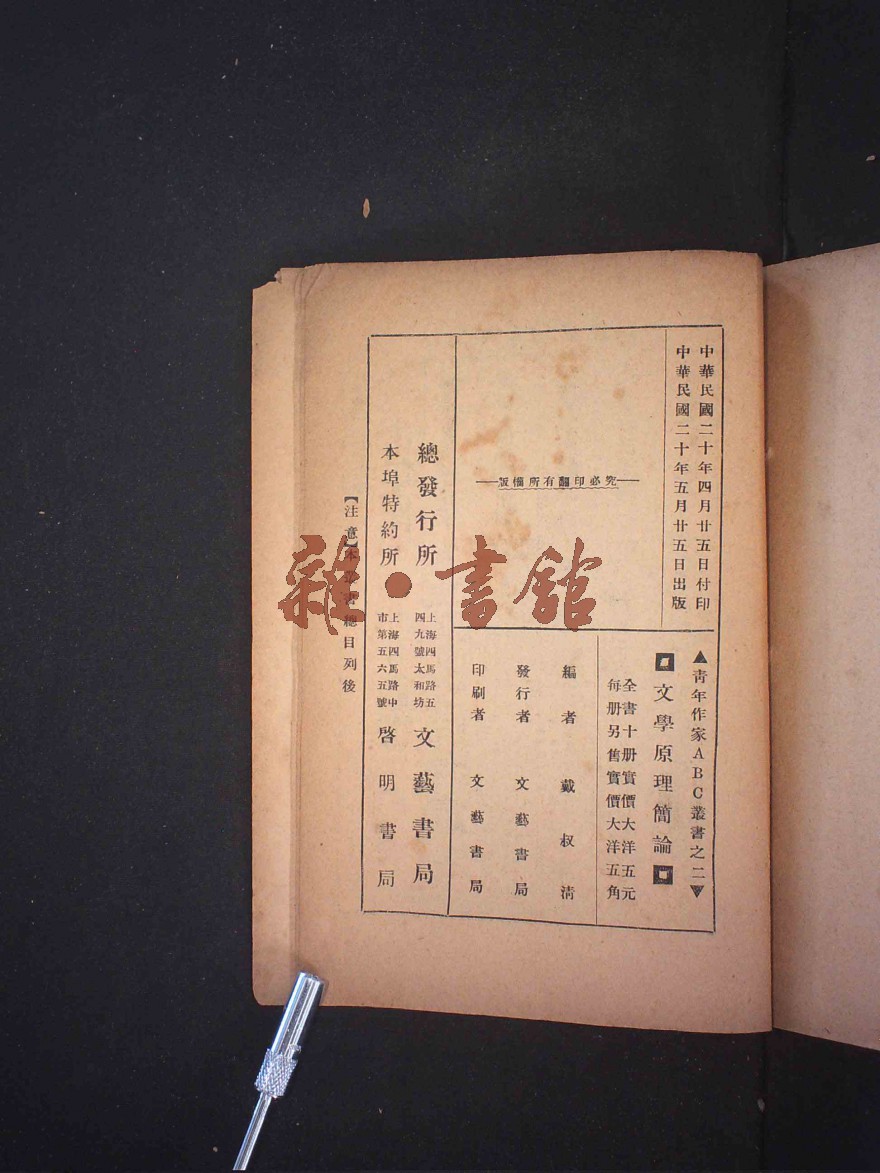 中華民國二十年四月廿五日付印
中華民國二十年五月廿五日出版
▲青年作家ABC叢書之二▼
文學原理簡論
全書十册實價大洋五元
每册另售實價大洋五角
版權所有翻印必究
編者 戴叔清
發行者 文藝書局
印刷者 文藝書局
總發行所 上海四馬路五
四九號太和坊 文藝書局
本埠特約所 上海四馬路中
市第五六五號 啓明書局
【注意】本書總目列後
雜·書館